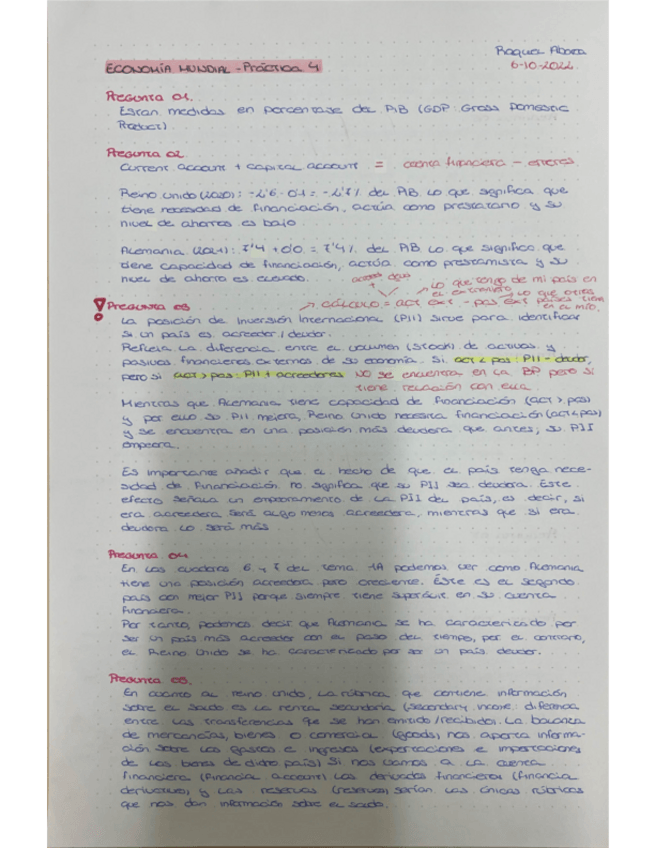 Raquel
6-10-2022
ECONOMÍA MUNDIAL - Práctica 4
Pregunta 01.
Están medidas en porcentaje del PIB (GDP: Gross Domestic
Product)
Pregunta 02
Current account + capital account = cuenta financiera - errores
Reino Unido (2020): -2'6 - 0'1 = -2'7% del PIB. Lo que significa que
tiene necesidad de financiación, actúa como prestatario y su
nivel de ahorros es bajo
Alemania (2021): 7'4 + 0'0 = 7'4% del PIB lo que significa que
tiene capacidad de financiación, actúa como prestamista y su
nivel de ahorro es elevado.
lo que tengo de mi país en
el extranjero
lo que otros
países tienen
en el mío.
Pregunta 03 → cálculo = act ext - pas ext
La posición de Inversión Internacional (PII) sirve para identificar
si un país es acreedor/deudor.
Refleja la diferencia entre el volumen (stock) de activos y
pasivos financieros externos de su economía. Si act < pas: PII - deudor,
pero si act > pas: PII + acreedores NO se encuentra en la BP pero si
tiene relación con ella.
Mientras que Alemania tiene capacidad de financiación (act > pas)
y por ello su PII mejora, Reino Unido necesita financiación (act < pas)
y se encuentra en una posición más deudora que antes; su PII
empeora.
Es importante añadir que el hecho de que el país tenga nece-
sidad de financiación no significa que su PII sea deudora. Este
efecto señala un empeoramiento de la PII del país, es decir, si
era acreedora será algo menos acreedora, mientras que si era
deudora lo será más
Pregunta 04
En los cuadros 6 y 7 del tema 1A podemos ver como Alemania
tiene una posición acreedora pero creciente. Éste es el segundo
país con mejor PII porque siempre tiene superávit en su cuenta
financiera.
Por tanto, podemos decir que Alemania se ha caracterizado por
ser un país más acreedor con el paso del tiempo, por el contrario,
el Reino Unido se ha caracterizado por ser un país deudor.
Pregunta 05.
En cuanto al reino unido, la rúbrica que contiene información
sobre el saldo es la renta secundaria (secondary income: diferencia
entre las transferencias que se han emitido/recibido). La balanza
de mercancías, bienes o comercial (goods), nos aporta informa-
ción sobre los gastos e ingresos (exportaciones e importaciones
de los bienes de dicho país) Si nos vamos a la cuenta
financiera (financial account) los derivados financieros (financial
derivatives) y las reservas (reserves) serían las únicas rúbricas
que nos dan información sobre el saldo.